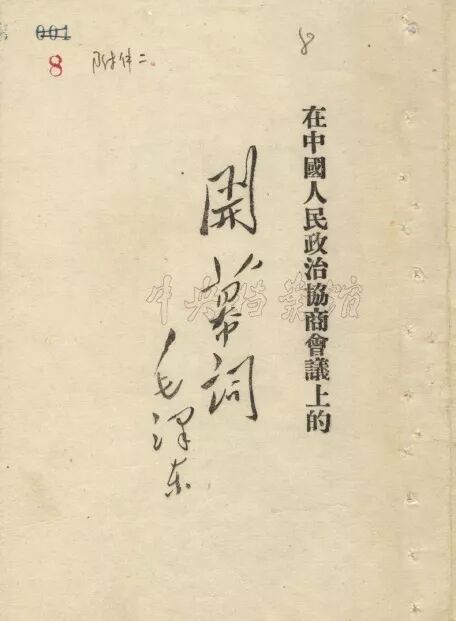 001
8
附件二。
8
在中國人民政治協商會議上的
開幕词
毛澤东
中央档案馆